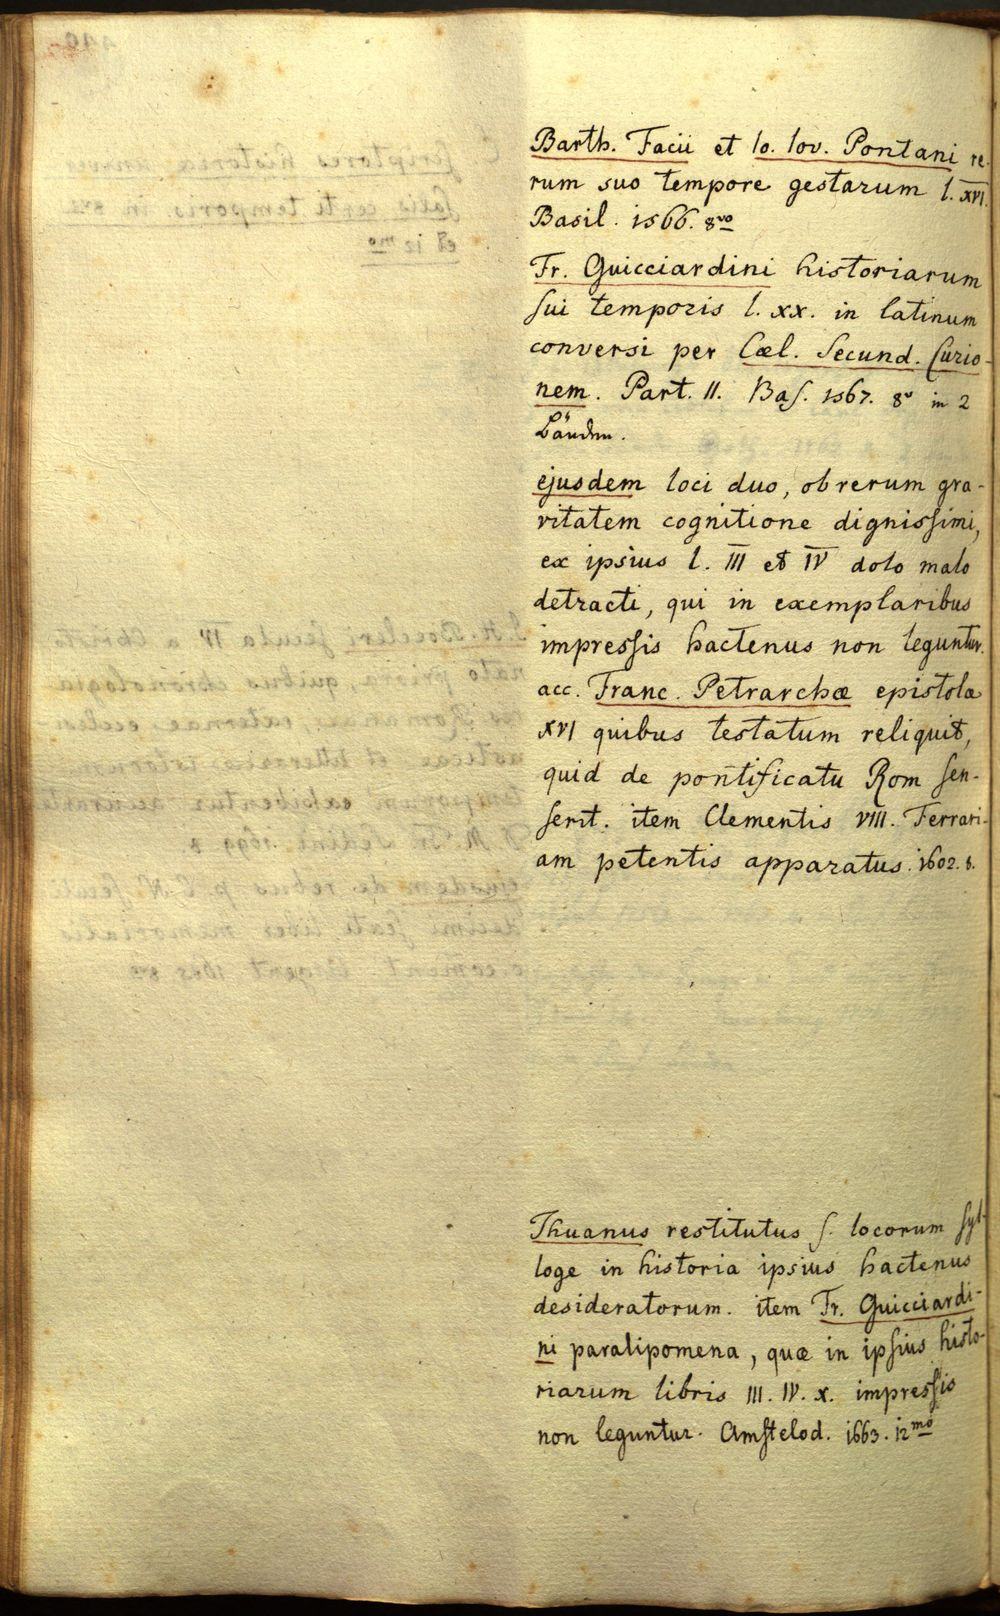 Barth. Facii et Io. Iov. Pontani re-
rum suo tempore gestarum l. XVI.
Basil. 1566. 8vo
Fr. Guicciardini historiarum
sui temporis l. XX. in latinum
conversi per Cæl. Secund. Curio-
nem. Part. II. Bas. 1567. 8o in 2
Bänden.
ejusdem loci duo, ob rerum gra-
vitatem cognitione dignissimi,
ex ipsius l. III et IV dolo malo
detracti, qui in exemplaribus
impressis hactenus non leguntur.
acc. Franc. Petrarchæ epistolæ
XVI quibus testatum reliquit,
quid de pontificatu Rom sen-
serit. item Clementis VIII. Ferrari-
am petentis apparatus. 1602. 8.
Thuanus restitutus s. locorum syl-
loge in historia ipsius hactenus
desideratorum. item Fr. Guicciardi-
ni paralipomena, quæ in ipsius histo-
riarum libris III. IV. X. impressis
non leguntur. Amstelod. 1663. 12mo